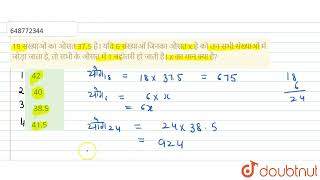 648772344
18 संख्याओं का औसत 37.5 है। यदि 6 संख्याओं जिनका औसत x है को उन सभी संख्याओं में
जोड़ा जाता है, तो सभी के औसत में 1 बढ़ोतरी हो जाती है। x का मान क्या है?
1 42
2 40
3 38.5
4 41.5
योग18 = 18 x 37.5 = 675
योग6 = 6 x x
= 6x
योग24 = 24 x 38.5
= 924
18
6
24
doubtnut